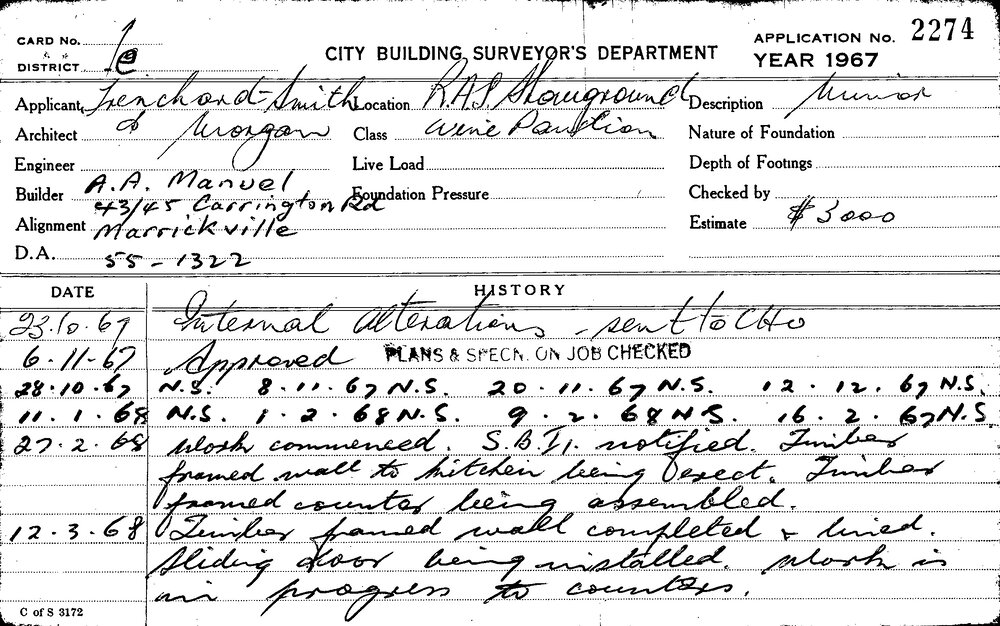 CARD No. 1e
DISTRICT
CITY BUILDING SURVEYOR'S DEPARTMENT
APPLICATION No. 2274
YEAR 1967
Applicant Trenchard-Smith Location R.A.S Showground Description Minor
Architect & Morgan Class Wine Pavilion Nature of Foundation
Engineer Live Load Depth of Footings
Builder A.A. Manuel Foundation Pressure Checked by
43/45 Carrington Rd
Alignment Marrickville Estimate $3000
D.A. 55-1322
DATE HISTORY
23.10.67 Internal alterations - sent to CHO
6-11-67 Approved PLANS & SPECN. ON JOB CHECKED
28.10.67 N.S. 8.11.67 N.S. 20.11.67 N.S. 12.12.67 N.S.
11.1.68 N.S. 1.2.68 N.S. 9.2.68 N.S. 16.2.67 N.S
27.2.68 Work commenced. notified. Timber
framed wall to kitchen being erect. Timber
framed counter being assembled.
12.3.68 Timber framed wall completed & lined.
Sliding door being installed. Work is
in progress to counters.
C of S 3172